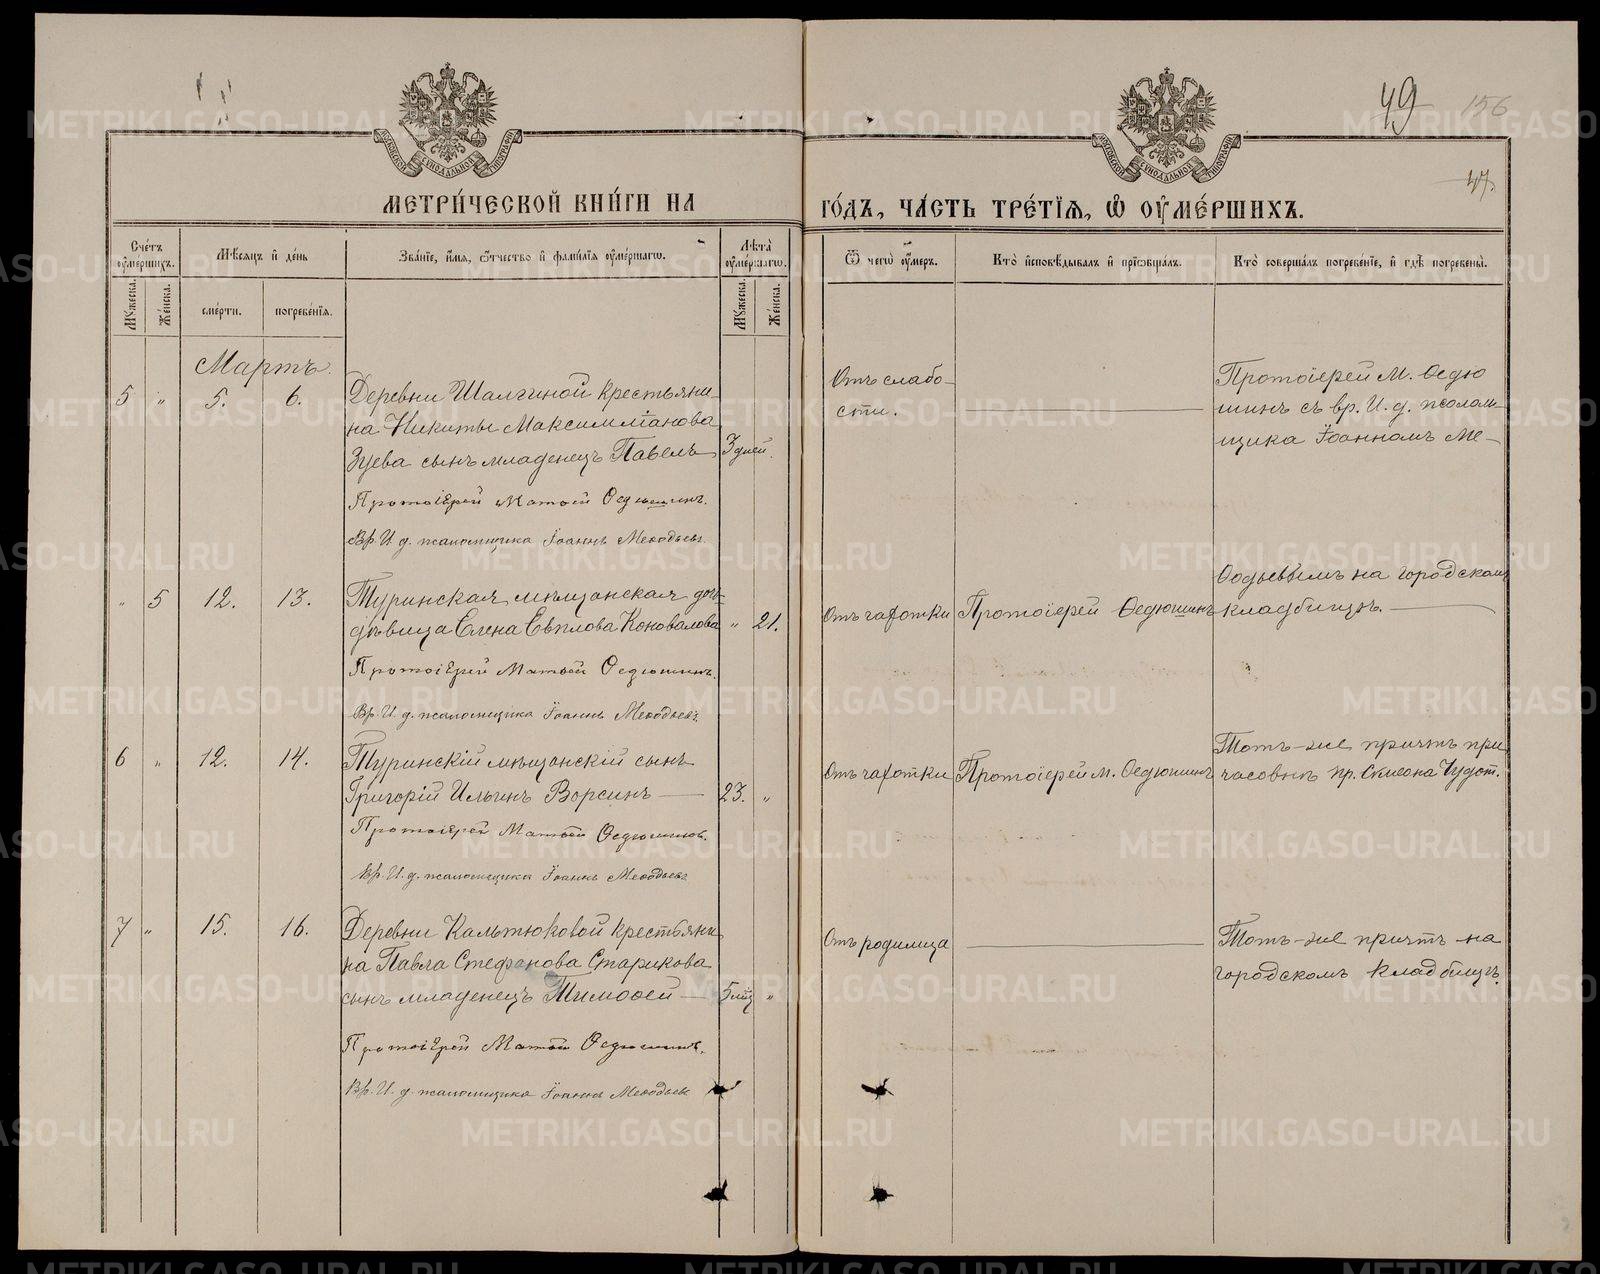 49
156
47.
МОСКОВСКОЙ СѴНОДАЛЬНОЙ ТИПОГРАФІИ
МОСКОВСКОЙ СѴНОДАЛЬНОЙ ТИПОГРАФІИ
МЕТРИ́ЧЕСКОЙ КНИ́ГИ НА
ГО́ДЪ, ЧА́СТЬ ТРЕ́ТІѦ, Ѿ ОУ҆МЕ́РШИХЪ.
Сче́тъ оу҆ме́ршихъ.
Мꙋ́жеска.
Же́нска.
Мѣ́сяцъ и҆ де́нь
сме́рти.
погребе́нїѧ.
Зва́нїе, и҆́мѧ, ѻ҆́тчество и҆ фами́лїѧ оу҆ме́ршагѡ.
Лѣ́та оу҆ме́ршагѡ.
Мꙋ́жеска.
Же́нска.
Ѿ чегѡ̀ оу҆́меръ.
Кто̀ и҆сповѣ́дывалъ и҆ прїѡбща́лъ.
Кто̀ соверша́лъ погребе́нїе, и҆ гдѣ̀ погребены̀.
Мартъ.
5 „ 5. 6.
Деревни Шалгиной крестьяни-
на Никиты Максимиліанова
Зуева сынъ младенецъ Павелъ 3 дней.
Протоіерей Матѳей Ѳедюшинъ.
Вр. И. д. псаломщика Іоаннъ Меѳодьевъ.
Отъ слабо-
сти.
Протоіерей М. Ѳедю
шинъ съ вр. И. д. псалом-
щика Іоанномъ Ме-
ѳодьевымъ на городскомъ
кладбищѣ.
„ 5 12. 13.
Туринская мѣщанская дочь
дѣвица Елена Евплова Коновалова „ 21.
Протоіерей Матѳей Ѳедюшинъ.
Вр. И. д. псаломщика Іоаннъ Меѳодьевъ
Отъ чахотки
Протоіерей Ѳедюшинъ
6 „ 12. 14.
Туринскій мѣщанскій сынъ
Григорій Ильинъ Ворсинъ 23. „
Протоіерей Матѳей Ѳедюшинъ.
Вр. И. д. псаломщика Іоаннъ Меѳодьевъ
Отъ чахотки
Протоіерей М. Ѳедюшинъ
Тотъ-же причтъ при
часовнѣ пр. Симеона Чудот.
7 „ 15. 16.
Деревни Кальтюковой крестьяни
на Павла Стефанова Старикова
сынъ младенецъ Тимоѳей 5 мѣс „
Протоіерей Матѳей Ѳедюшинъ.
Вр. И. д. псаломщика Іоаннъ Меѳодьевъ
Отъ родимца
Тотъ-же причтъ на
городскомъ кладбищѣ.
METRIKI.GASO-URAL.RU